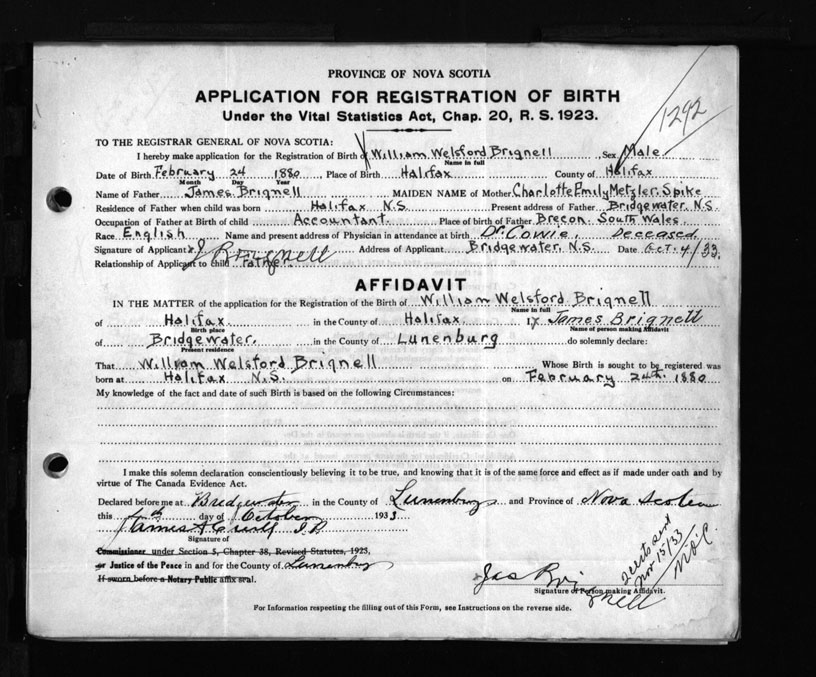 PROVINCE OF NOVA SCOTIA
APPLICATION FOR REGISTRATION OF BIRTH
Under the Vital Statistics Act, Chap. 20, R. S. 1923.
1292
TO THE REGISTRAR GENERAL OF NOVA SCOTIA:
I hereby make application for the Registration of Birth of William Welsford Brignell, Sex Male
Name in full
Date of Birth February 24 1880 Place of Birth Halifax County of Halifax
Month Day Year
Name of Father James Brignell MAIDEN NAME of Mother Charlotte Emily Metzler Spike
Residence of Father when child was born Halifax N.S. Present address of Father Bridgewater, N.S.
Occupation of Father at Birth of child Accountant. Place of birth of Father Brecon. South Wales.
Race English Name and present address of Physician in attendance at birth Dr. Cowie, Deceased
Signature of Applicant J Brignell Address of Applicant Bridgewater, N.S. Date Oct. 4/33.
Relationship of Applicant to child Father
AFFIDAVIT
IN THE MATTER of the application for the Registration of the Birth of William Welsford Brignell
Name in full
of Halifax in the County of Halifax I, James Brignell
Birth place Name of person making Affidavit
of Bridgewater. in the County of Lunenburg do solemnly declare:
Present residence
That William Welsford Brignell Whose Birth is sought to be registered was
born at Halifax N.S. on February 24th. 1880
My knowledge of the fact and date of such Birth is based on the following Circumstances:
I make this solemn declaration conscientiously believing it to be true, and knowing that it is of the same force and effect as if made under oath and by
virtue of The Canada Evidence Act.
Declared before me at Bridgewater in the County of Lunenburg and Province of Nova Scotia
this 4th day of October 1933
James A J.P.
Signature of
Commissioner under Section 5, Chapter 38, Revised Statutes, 1923,
or Justice of the Peace in and for the County of Lunenburg
If sworn before a Notary Public affix seal.
Jas Brignell
Signature of Person making Affidavit.
2 certs sent
Nov 15/33
For Information respecting the filling out of this Form, see Instructions on the reverse side.